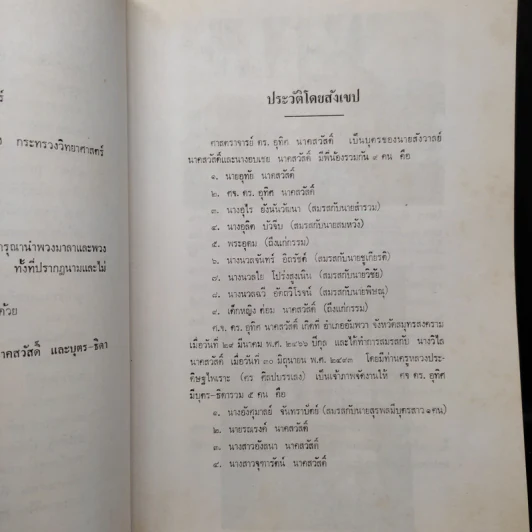 ร์
กระทรวงวิทยาศาสตร์
กรุณานำพวงมาลาและพวง
ทั้งที่ปรากฏนามและไม่
ด้วย
นาคสวัสดิ์ และบุตร-ธิดา
ประวัติโดยสังเขป
ศาสตราจารย์ ดร. อุทิศ นาคสวัสดิ์ เป็นบุตรของนายสังวาลย์
นาคสวัสดิ์และนางยบเชย นาคสวัสดิ์ มีพี่น้องรวมกัน ๙ คน คือ
๑. นายอุทัย นาคสวัสดิ์
๒. ศจ. ดร. อุทิศ นาคสวัสดิ์
๓. นางอุไร ยังนันวัฒนา (สมรสกับนายสำรวม)
๔. นางอุลิต บัวจีบ (สมรสกับนายสมหวัง)
๕. พระอุดม (ถึงแก่กรรม)
๖. นางนวลจันทร์ อิถรัชด์ (สมรสกับนายชูเกียรติ)
๗. นางนวลใย โปร่งสูงเนิน (สมรสกับนายวิชัย)
๘. นางนวลฉวี อัศถวิโรจน์ (สมรสกับนายพิษณุ)
๙. เด็กหญิง ต๋อม นาคสวัสดิ์ (ถึงแก่กรรม)
ศ.จ. ดร. อุทิศ นาคสวัสดิ์ เกิดที่ อำเภออัมพวา จังหวัดสมุทรสงคราม
เมื่อวันที่ ๒๙ มีนาคม พ.ศ. ๒๔๖๖ ปีกุล และได้ทำการสมรสกับ นางวิไล
นาคสวัสดิ์ เมื่อวันที่ ๓๐ มิถุนายน พ.ศ. ๒๔๙๓ โดยมีท่านครูหลวงประ-
ดิษฐไพเราะ (ศร ศิลปบรรเลง) เป็นเจ้าภาพจัดงานให้ ศจ ดร. อุทิศ
มีบุตร-ธิดารวม ๕ คน คือ
๑. นางอังศุมาลย์ จันทราปัตย์ (สมรสกับนายสุรพลมีบุตรสาว ๑คน)
๒. นายรณรงค์ นาคสวัสดิ์
๓. นางสาวอังสนา นาคสวัสดิ์
๔. นางสาวจุฑารัตน์ นาคสวัสดิ์